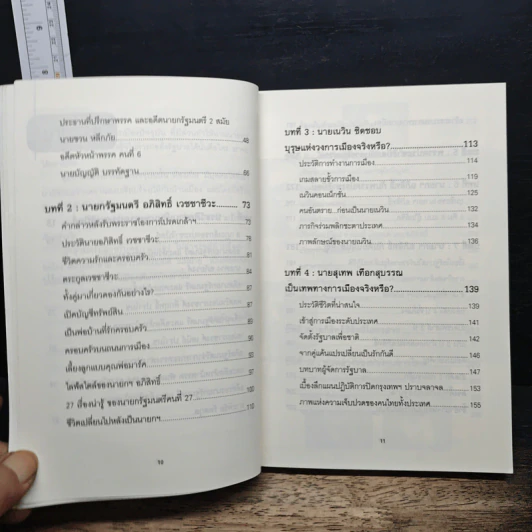 ประธานที่ปรึกษาพรรค และอดีตนายกรัฐมนตรี 2 สมัย
นายชวน หลีกภัย 48
อดีตหัวหน้าพรรค คนที่ 6
นายบัญญัติ บรรทัดฐาน 66
บทที่ 2 : นายกรัฐมนตรี อภิสิทธิ์ เวชชาชีวะ 73
คำกล่าวหลังรับพระราชโองการโปรดเกล้าฯ 73
ประวัตินายอภิสิทธิ์ เวชชาชีวะ 76
ชีวิตความรักและครอบครัว 81
ตระกูลเวชชาชีวะ 84
ทั้งคู่มาเกี่ยวดองกันอย่างไร? 87
เปิดบัญชีทรัพย์สิน 87
เป็นพ่อบ้านที่รักครอบครัว
ครอบครัวบนถนนการเมือง
เลี้ยงลูกแบบคุณพ่อมาร์ค
ไลฟ์สไตล์ของนายกฯ อภิสิทธิ์
27 เรื่องน่ารู้ ของนายกรัฐมนตรีคนที่ 27 100
ชีวิตเปลี่ยนไปหลังเป็นนายกฯ 110
10
บทที่ 3 : นายเนวิน ชิดชอบ
บุรุษแห่งวงการเมืองจริงหรือ? 113
ประวัติการทำงานการเมือง 114
เกมสลายขั้วการเมือง 119
เนวินคอนเน็กชั่น 125
คนอันตราย...ก่อนเป็นนายเนวิน 132
ภารกิจร่วมพลิกชะตาประเทศ 134
ภาพลักษณ์ของนายเนวิน 136
บทที่ 4 : นายสุเทพ เทือกสุบรรณ
เป็นเทพทางการเมืองจริงหรือ? 139
ประวัติชีวิตที่น่าสนใจ 139
เข้าสู่การเมืองระดับประเทศ 141
จัดตั้งรัฐบาลเพื่อชาติ 142
จากคู่แค้นแปรเปลี่ยนเป็นรักกันดี 146
บทบาทผู้จัดการรัฐบาล 147
เบื้องลึกแผนปฏิบัติการปิดกรุงเทพฯ ปราบจลาจล 153
ภาพแห่งความเจ็บปวดของคนไทยทั้งประเทศ 155
11